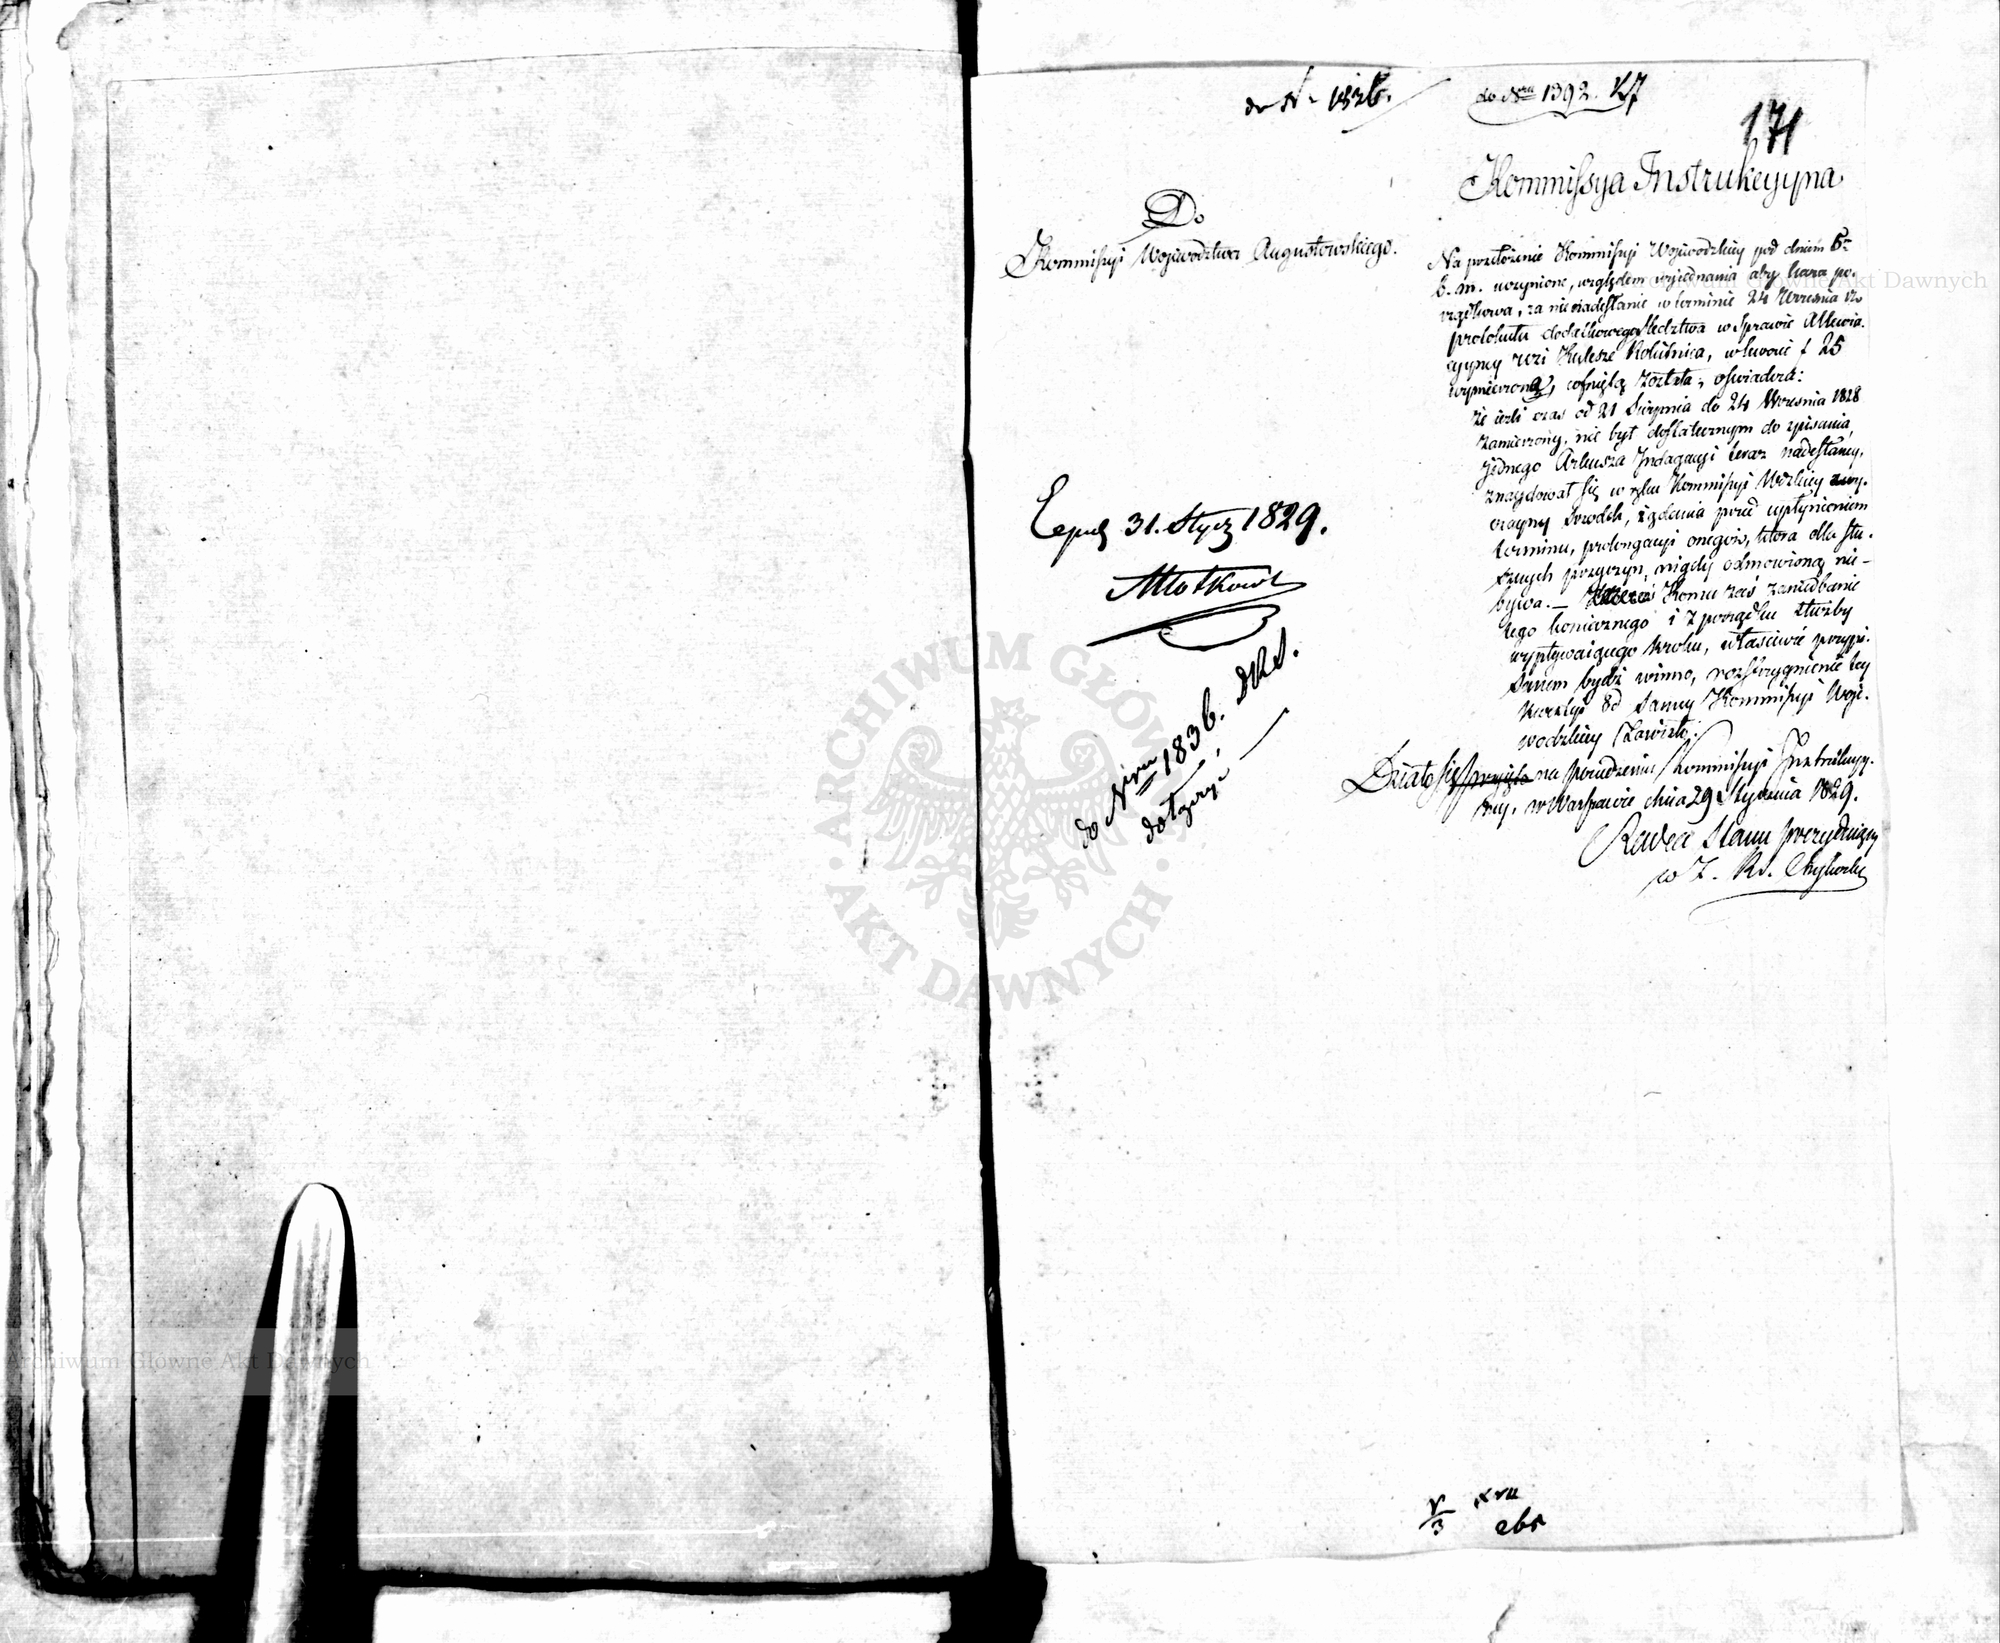 do N. 1836.
do Nru 1392. K7
171
Kommissya Instrukcyyna
Do
Kommissyi Województwa Augustowskiego.
Na przełożenie Kommissyi Wojewodzkiey pod dniem 6go
b. m. uczynione, względem wyiednania aby kara po-
rządkowa, za nienadesłanie w terminie 24 Września r.z.
protokułu dodatkowego śledztwa w Sprawie Allewia-
cyyney wsi Kulesze Rokitnica, w kwocie f 25
wymierzona, cofniętą została; oświadcza:
że ieżli czas od 21 Sierpnia do 24 Września 1828
zamierzony, nie był dostatecznym do spisania,
jednego Arkusza Indagacyi teraz nadesłaney,
znaydował się w ręku Kommissyi Wdzkiey zwy-
czayny srodek, żądania przed upłynieniem
terminu, prolongacyi onegoż, która dla słu-
sznych przyczyn, nigdy odmowioną nie-
bywa. — Komu zaś zaniedbanie
tego koniecznego i z porządku służby
wypływaiącego kroku, właściwie przypi-
sanem bydź winno, rozstrzygnienie tey
kwestyi od samey Kommissyi Woje-
wodzkiey zawisło.
Działo się na posiedzeniu Kommissyi Instrukcyy-
ney, w Warszawie dnia 29 Stycznia 1829.
Radca Stanu Prezyduiący
w Z. Rs.
Exped 31. Stycz 1829.
do Nru 1836. DRS.
dołączyć
ARCHIWUM GŁÓWNE AKT DAWNYCH
Archiwum Główne Akt Dawnych
Archiwum Główne Akt Dawnych